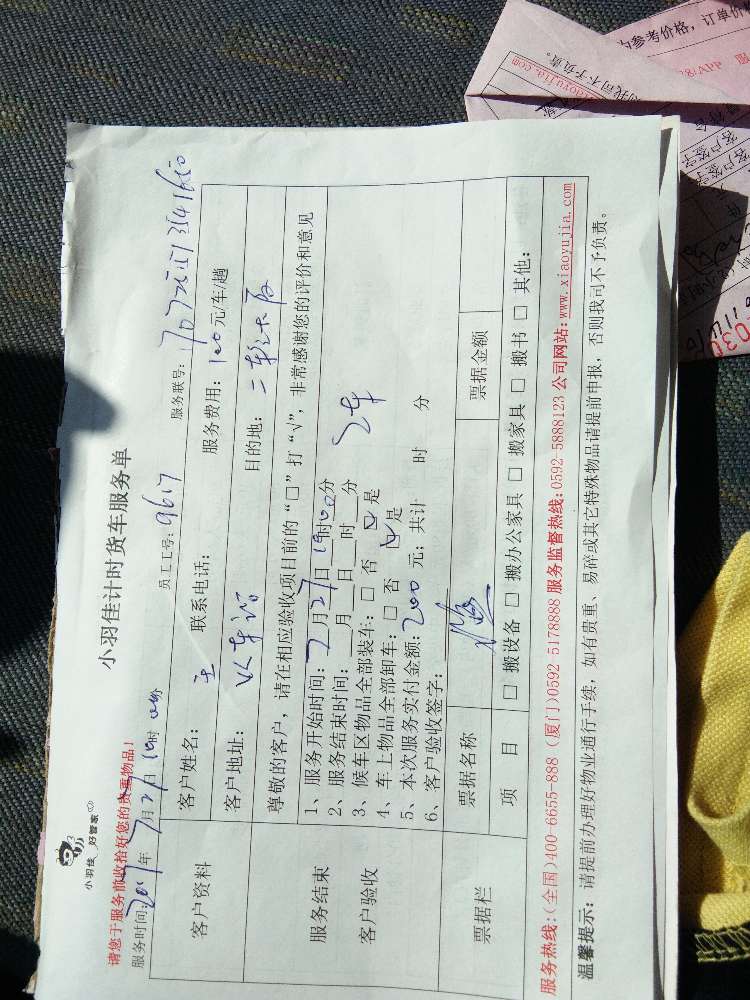 小羽佳 好管家
小羽佳计时货车服务单
请您于服务前收拾好您的贵重物品！
服务时间: 年7月27日10时00分 员工工号: 9617 服务联号:
客户资料
客户姓名: 王 联系电话: 服务费用: 100元/车/趟
客户地址: 目的地:
服务结束
客户验收
尊敬的客户，请在相应验收项目前的“□”打“√”，非常感谢您的评价和意见
1、服务开始时间: 7月27日10时00分
2、服务结束时间: 月 日 时 分
3、候车区物品全部装车: □ 否 ☑ 是 2车
4、车上物品全部卸车: □ 否 ☑ 是
5、本次服务实付金额: 200 元; 共计 时 分
6、客户验收签字:
票据栏
票据名称 票据金额
项 目 □ 搬设备 □ 搬办公家具 □ 搬家具 □ 搬书 □ 其他:
服务热线:(全国)400-6655-888 (厦门)0592 5178888 服务监督热线:0592-5888123 公司网站:www.xiaoyujia.com
温馨提示: 请提前办理好物业通行手续，如有贵重、易碎或其它特殊物品请提前申报，否则我司不予负责。
参考价格，订单价
APP
我司不予负责。
客户签字
客户签字